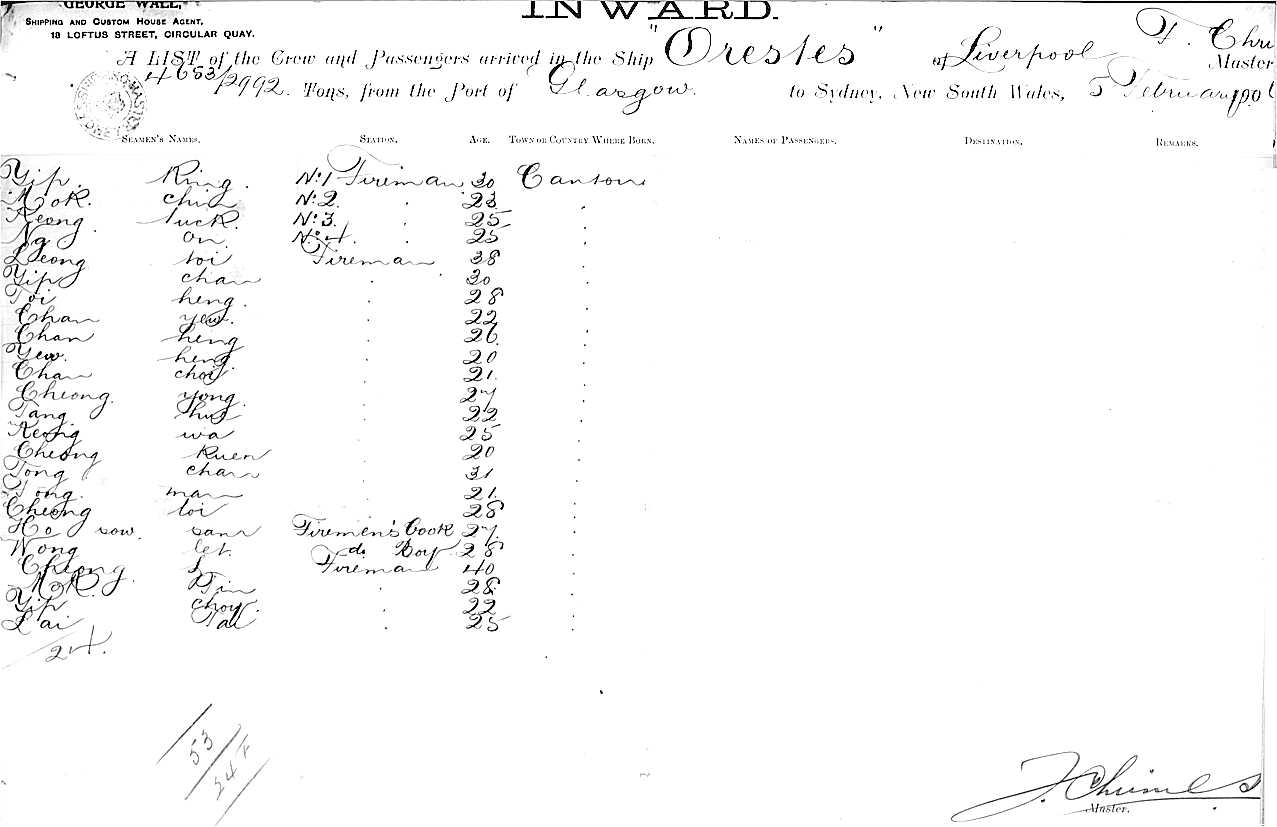 GEORGE WALL,
SHIPPING AND CUSTOM HOUSE AGENT,
18 LOFTUS STREET, CIRCULAR QUAY.
INWARD.
A LIST of the Crew and Passengers arrived in the Ship "Orestes" of Liverpool F. Chri
Master
4653/2992. Tons, from the Port of Glasgow. to Sydney, New South Wales, 5 February 190
SEAMEN'S NAMES. STATION. AGE. TOWN OR COUNTRY WHERE BORN. NAMES OF PASSENGERS. DESTINATION. REMARKS.
Yip King. No. 1 Fireman 30 Canton
Mok. chin No. 2. 23
Keong luck. No. 3. 25
Ng on No. 4. 25
Leong toi Fireman 38
Yip chan 30
Toi heng. 28
Chan yew. 22
Chan heng 26.
Yew. heng 20
Chan choy 21.
Cheong. yong. 27
Tang 22
Keong wa 25
Cheong Kuen 20
Tong chan 31
Tong. man 21.
Cheong toi 28
Ho sow. san Firemen's Cook 27.
Wong let. do Boy 28
Cheong. Fireman 40
Mok. Tin 28.
Yip choy. 22
Lai Tai 25
24.
53
24
Master.